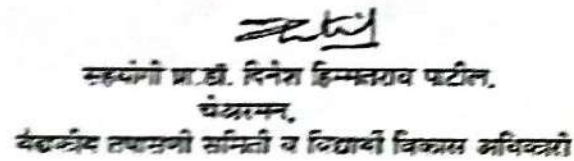 सहयोगी प्रा.डॉ. दिनेश हिम्मतराव पाटील,
चेअरमन,
वैद्यकीय तपासणी समिती व विद्यार्थी विकास अधिकारी